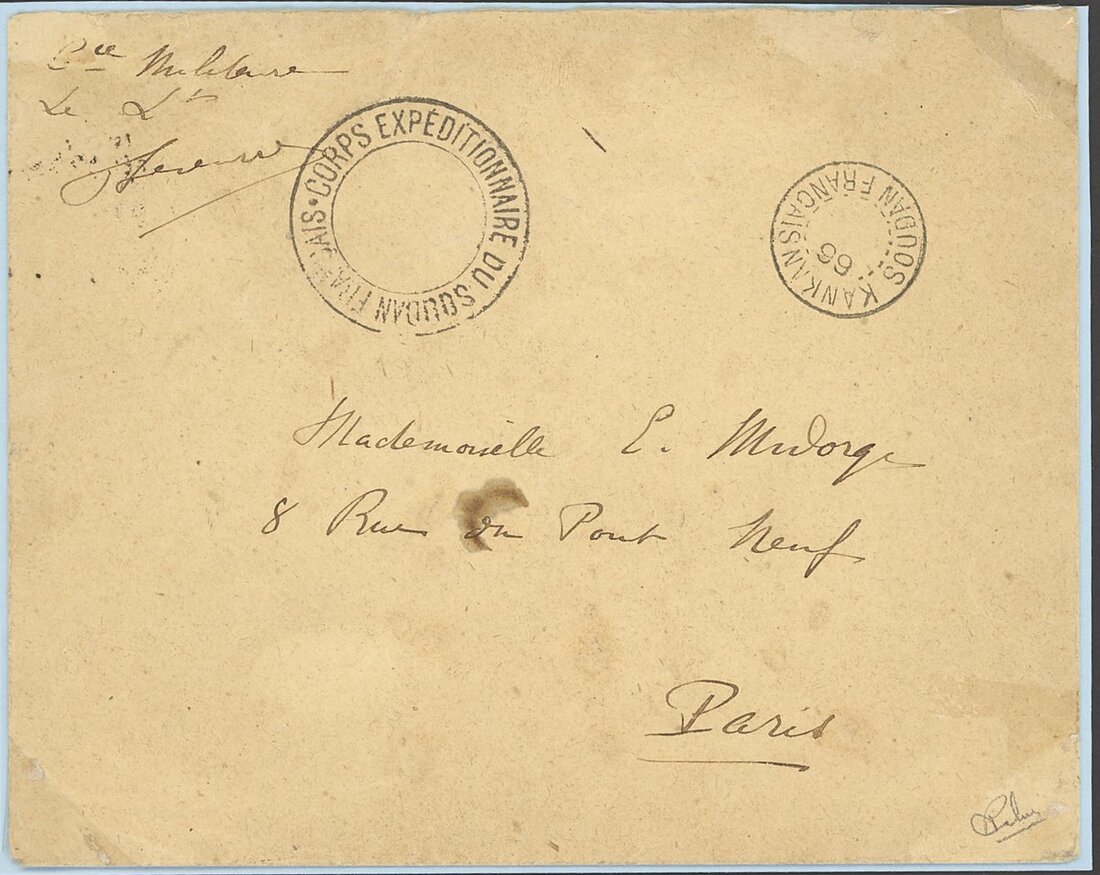 Cie Militaire
Le Lt
CORPS EXPÉDITIONNAIRE DU SOUDAN FRANÇAIS
KANKAN SOUDAN FRANÇAIS
66
Mademoiselle E. Midorge
8 Rue du Pont Neuf
Paris